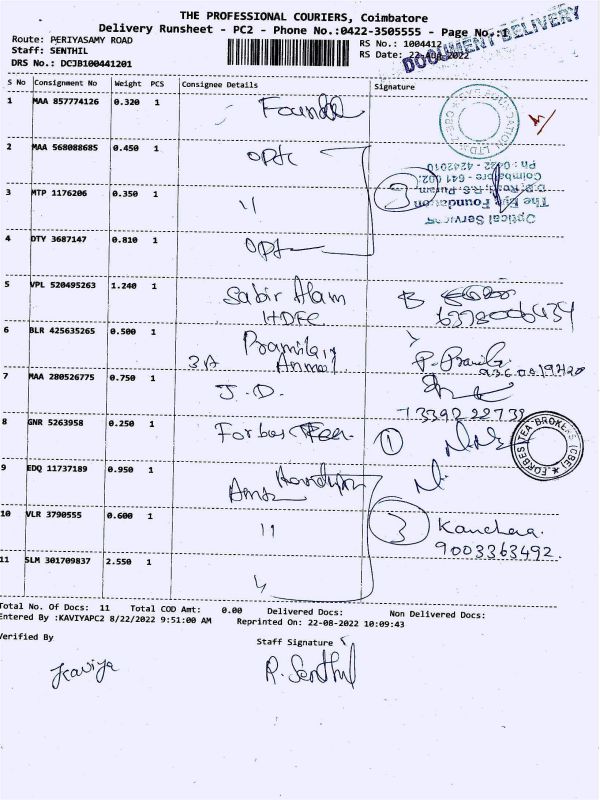 THE PROFESSIONAL COURIERS, Coimbatore
Delivery Runsheet - PC2 - Phone No.:0422-3505555 - Page No.:1
DOCUMENT DELIVERY
Route: PERIYASAMY ROAD
RS No.: 1004412
Staff: SENTHIL
RS Date: 22-Aug-2022
DRS No.: DCJB100441201
S No Consignment No Weight PCS Consignee Details Signature
1 MAA 857774126 0.320 1
2 MAA 568088685 0.450 1 opti
Ph : 0422 - 4242010
Coimbatore - 641 002.
D.B. Road, R.S. Puram
3 MTP 1176206 0.350 1 " 3
The Eye Foundation
Optical Services
4 DTY 3687147 0.810 1
5 VPL 520495263 1.240 1 Sabir Alam
HDFC
6 BLR 425635265 0.500 1
3A
7 MAA 280526775 0.750 1 J.D.
8 GNR 5263958 0.250 1 Forbes 1
FORBES TEA BROKERS (CBE)
9 EDQ 11737189 0.950 1
10 VLR 3790555 0.600 1 " 3 Kanchana
9003363492.
11 SLM 301709837 2.550 1
Total No. Of Docs: 11 Total COD Amt: 0.00 Delivered Docs: Non Delivered Docs:
Entered By :KAVIYAPC2 8/22/2022 9:51:00 AM Reprinted On: 22-08-2022 10:09:43
Verified By Staff Signature
Kaviya R. Senthil